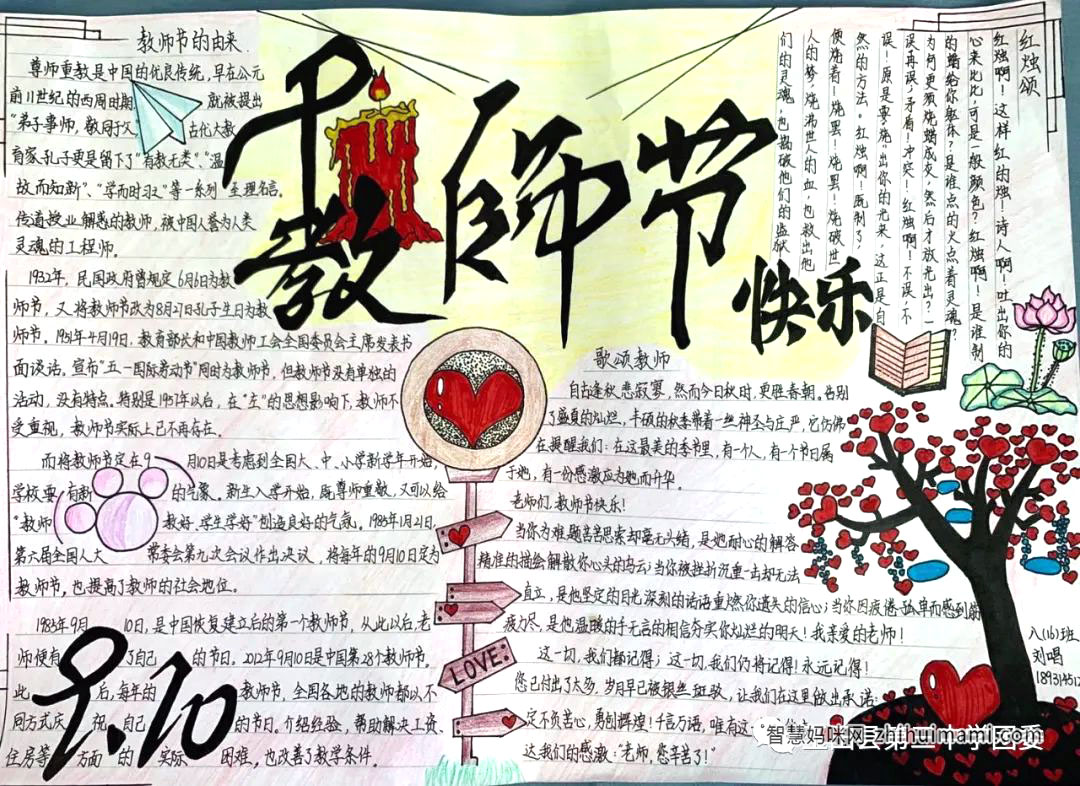 教师节的由来
尊师重教是中国的优良传统，早在公元
前11世纪的西周时期 就被提出
"弟子事师，敬同于父" 古代大教
育家孔子更是留下了"有教无类"、"温
故而知新"、"学而时习之"等一系列 至理名言。
传道授业解惑的教师，被中国人誉为人类
灵魂的工程师。
1932年，民国政府曾规定6月6日为教
师节，又将教师节改为8月27日孔子生日为教
师节。1951年4月19日，教育部长和中国教师工会全国委员会主席发表书
面谈话，宣布"五一国际劳动节"同时为教师节，但教师节没有单独的
活动，没有特点。特别是1957年以后，在"左"的思想影响下，教师不
受重视，教师节实际上已不再存在。
而将教师节定在9 月10日是考虑到全国大、中、小学新学年开始，
学校要 有新 的气象。新生入学开始，既尊师重教，又可以给
"教师 教好，学生学好"创造良好的气氛。1985年1月21日，
第六届全国人大 常委会第九次会议作出决议，将每年的9月10日定为
教师节，也提高了教师的社会地位。
1985年9月 10日，是中国恢复建立后的第一个教师节，从此以后老
师便有 了自己 的节日。2012年9月10日是中国第28个教师节。
此 后，每年的 教师节，全国各地的教师都以不
同方式庆 祝 自己 的节日。介绍经验，帮助解决工资、
住房等 方面 的 实际 困难，也改善了教学条件。
9.10
教师节
快乐
红烛颂
红烛啊！这样红的烛！诗人啊！吐出你的
心来比比，可是一般颜色？红烛啊！是谁制
的蜡给你躯体？是谁点的火点着灵魂？
为何更须烧蜡成灰，然后才放光出？一
误再误；矛盾！冲突！红烛啊！不误，不
误！原是要"烧"出你的光来，这正是自
然的方法。红烛啊！既制了，
便烧着！烧罢！烧罢！烧破世
人的梦，烧沸世人的血，也救出他
们的灵魂，也捣破他们的监狱
歌颂教师
自古逢秋悲寂寥，然而今日秋时，更胜春朝。告别
了盛夏的灿烂，丰硕的秋季带着一丝神圣与庄严，它仿佛
在提醒我们：在这最美的季节里，有一个人，有一个节日属
于她，有一份感激应为她而升华。
老师们，教师节快乐！
当你为难题苦苦思索却毫无头绪，是她耐心的解答
精准的描绘解散你心头的乌云；当你被挫折沉重一击却无法
直立，是他坚定的目光深刻的话语重燃你遗失的信心；当你因疲倦、孤单而感到筋
疲力尽，是他温暖的手无言的相信夯实你灿烂的明天！我亲爱的老师！
这一切，我们都记得；这一切，我们仍将记得！永远记得！
您已付出了太多，岁月早已被银丝斑驳，让我们在这里做出承诺：
定不负苦心，勇创辉煌！千言万语，唯有这
这我们的感激："老师，您辛苦了！"
LOVE:
八(16)班
刘唱
智慧妈咪网 zhihuimami.com